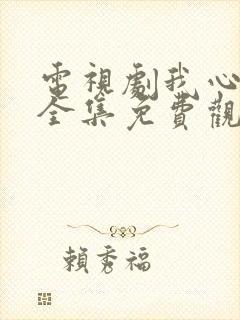 電視劇我心
全集免費觀
賴秀福